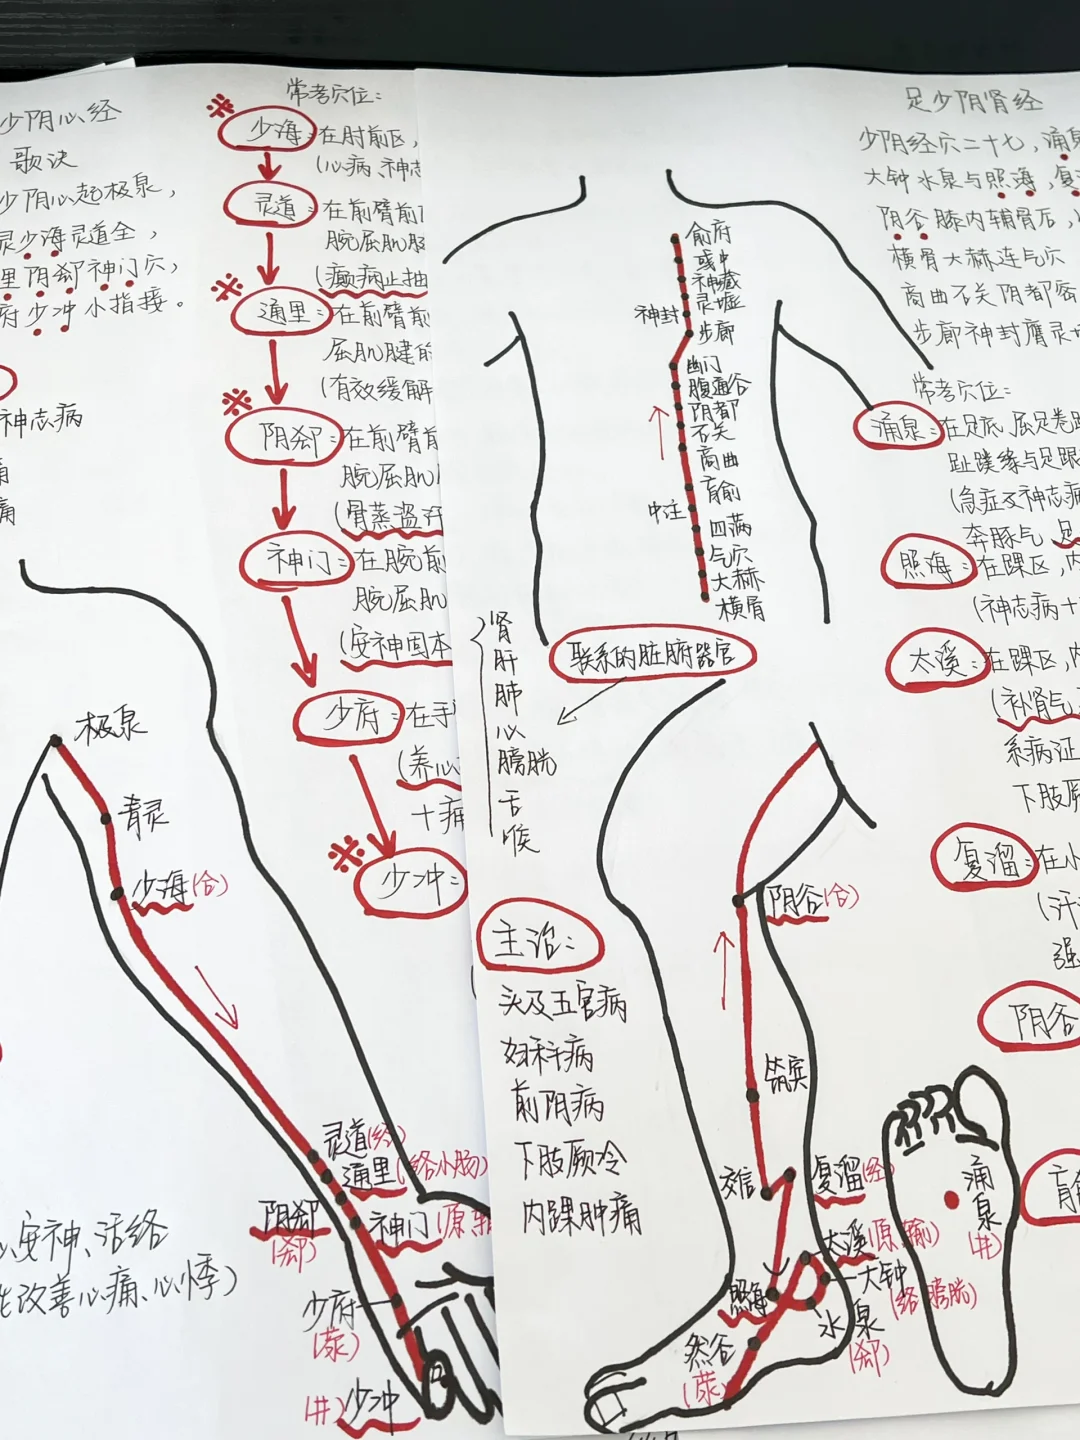 少阴心经
歌诀
少阴心起极泉，
灵少海灵道全，
里阴郄神门穴，
府少冲小指接。
神志病
痛
痛
安神、活络
改善心痛、心悸）
常考穴位：
※ 少海：在肘前区，
（心病、神志
灵道：在前臂前
腕屈肌
（癫痫止抽
※ 通里：在前臂前
屈肌腱的
（有效缓解
※ 阴郄：在前臂前
腕屈肌
（骨蒸盗汗
神门：在腕前
腕屈肌
（安神固本
少府：在手
（养心
十病
※ 少冲：
极泉
青灵
少海（合）
灵道（经）
通里（络小肠）
阴郄
（郄）
神门（原、输
少府
（荥）
（井）少冲
俞府
彧中
神藏
灵墟
神封
步廊
幽门
腹通谷
阴都
石关
商曲
肓俞
中注
四满
气穴
大赫
横骨
联系的脏腑器官
肾
肝
肺
心
膀胱
舌
喉
主治：
头及五官病
妇科病
前阴病
下肢厥冷
内踝肿痛
阴谷（合）
筑宾
交信
复溜（经）
太溪（原、输）
大钟
（络膀胱）
照海
水泉
（郄）
然谷
（荥）
涌泉
（井）
足少阴肾经
少阴经穴二十七，涌泉
大钟水泉与照海，复
阴谷膝内辅骨后，
横骨大赫连气穴
商曲石关阴都密
步廊神封膺灵墟
常考穴位：
涌泉：在足底，屈足卷趾
趾蹼缘与足跟
（急症及神志病
奔豚气，足
照海：在踝区，内
（神志病十
太溪：在踝区，内
（补肾气
系病证
下肢厥
复溜：在小
（汗
强
阴谷
肓俞